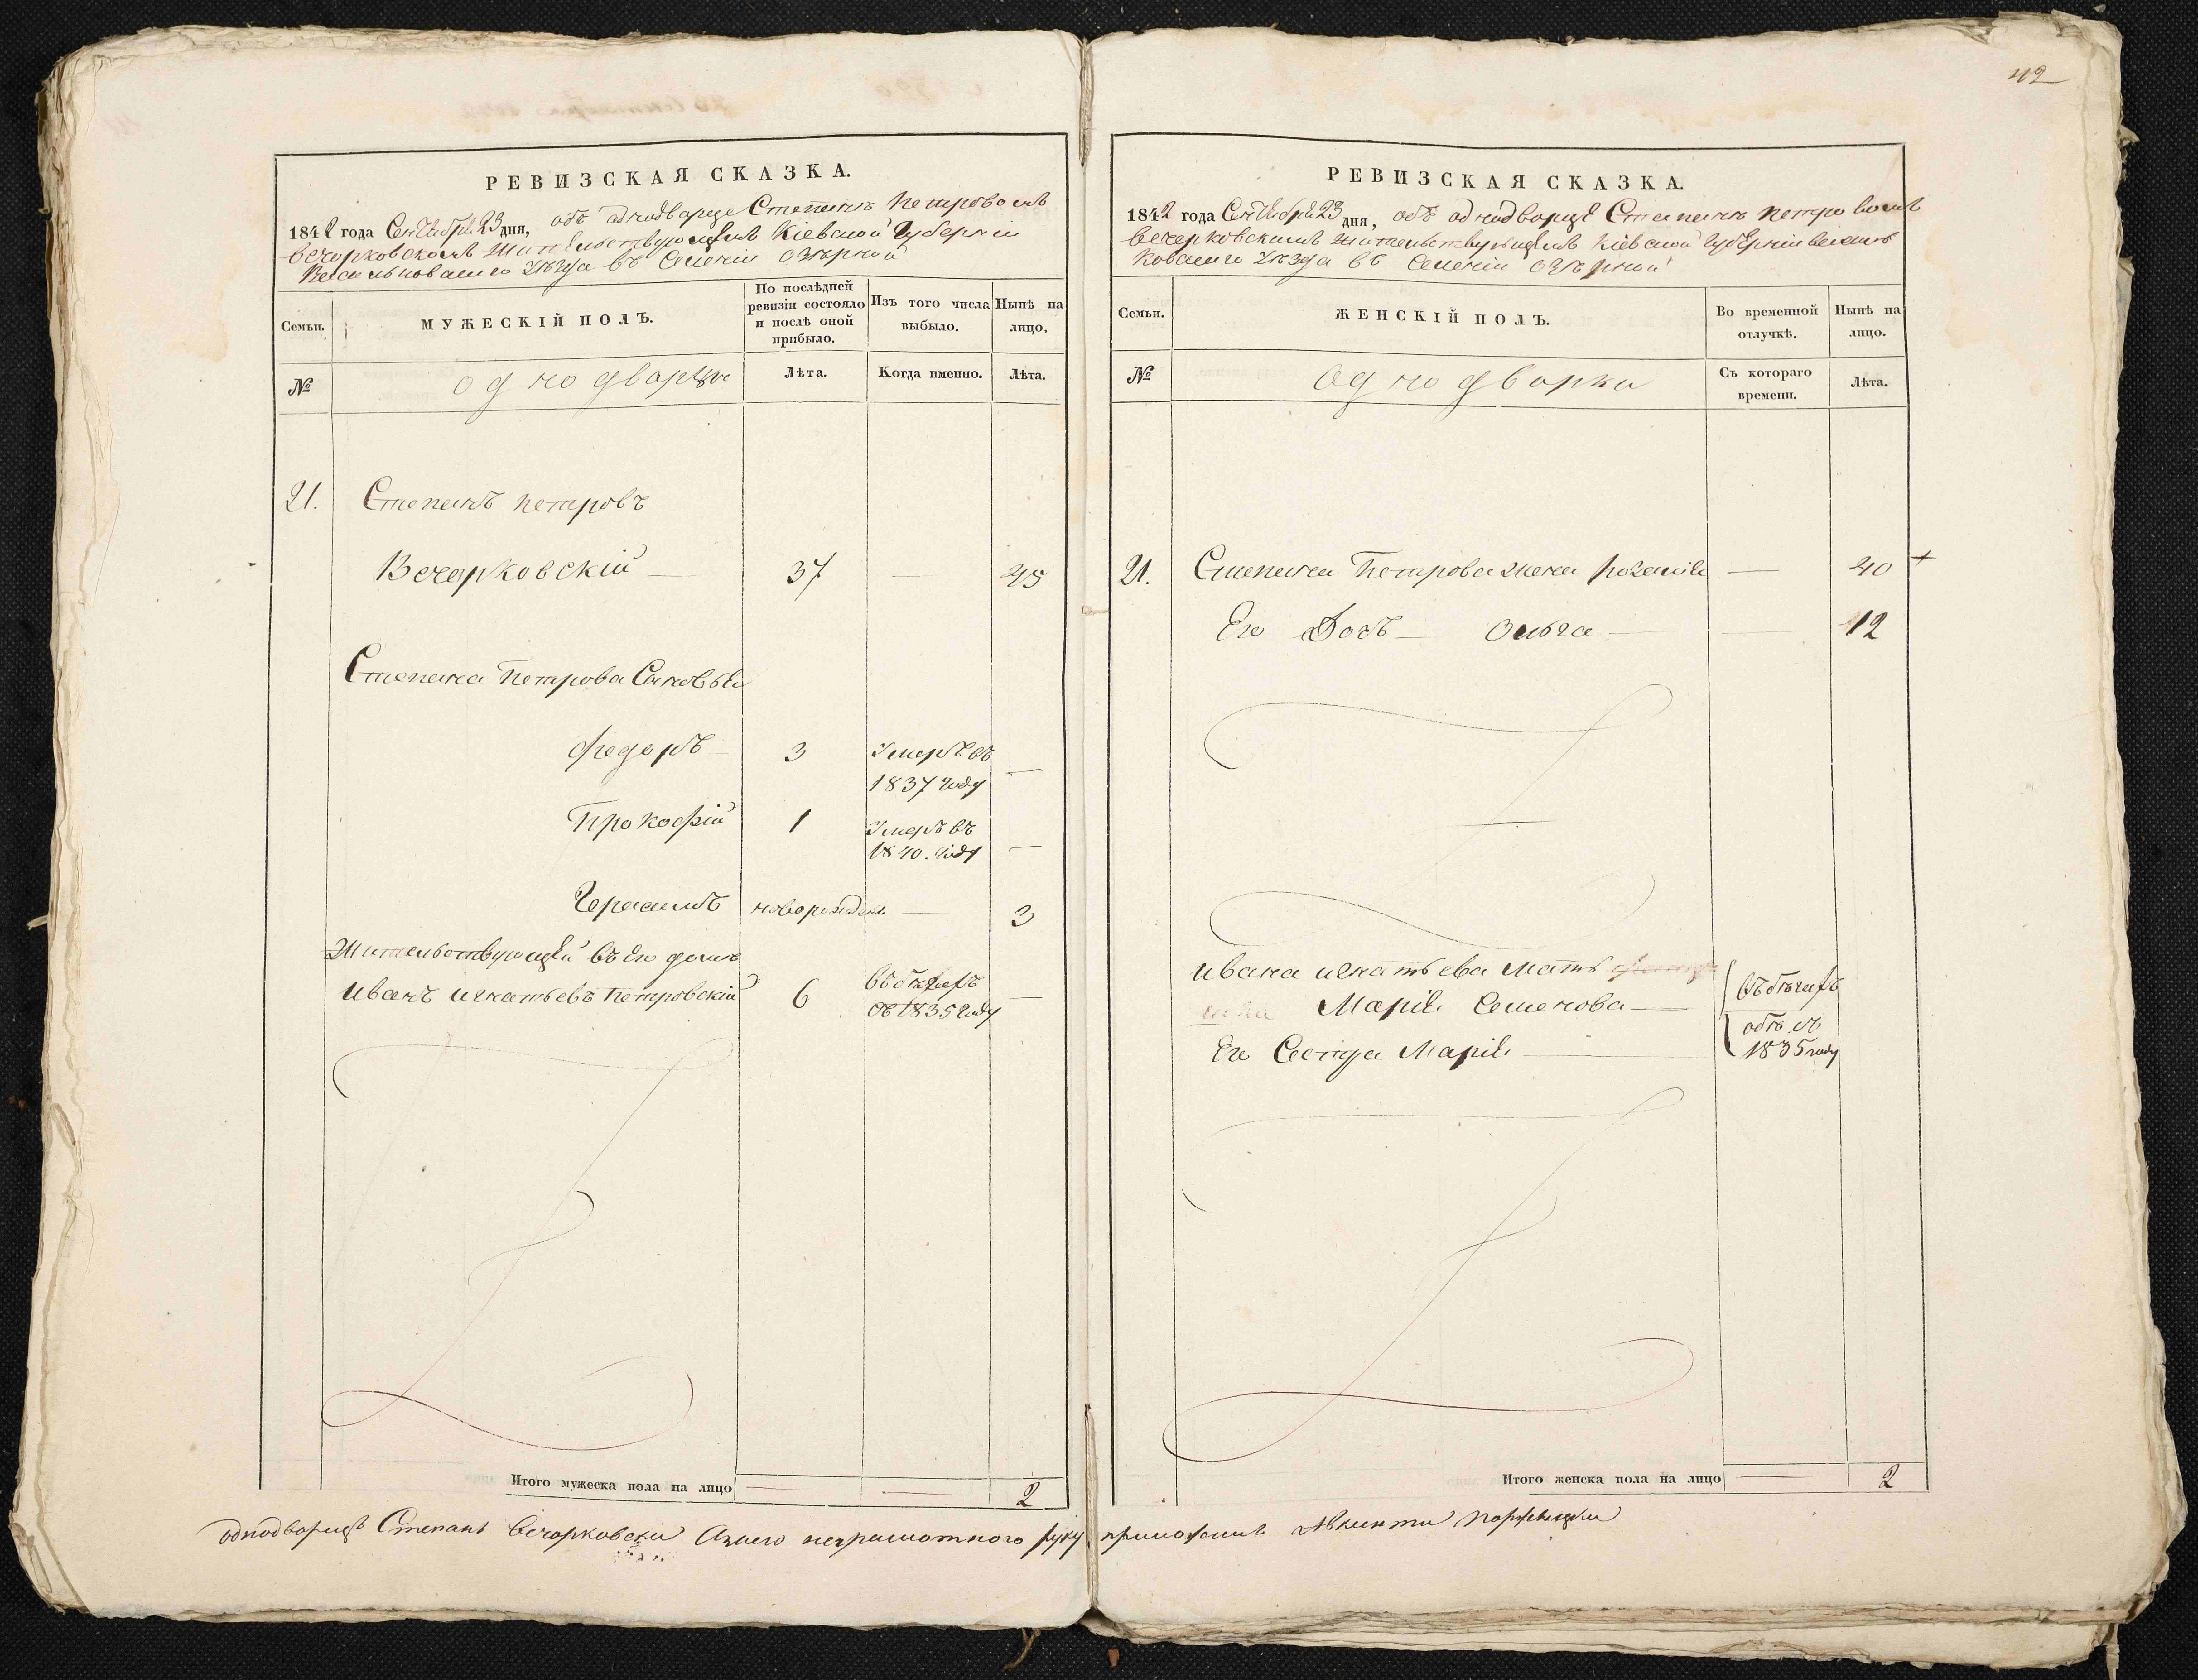 42
РЕВИЗСКАЯ СКАЗКА.
1842 года Сентября 23 дня, объ однодворце Степанѣ Петровомъ
Вечорковскомъ жительствующемъ Кіевской Губерніи
Васильковскаго Уѣзда въ Селеніи Озѣрной
Семьи.
МУЖЕСКІЙ ПОЛЪ.
По послѣдней ревизіи состояло и послѣ оной прибыло.
Изъ того числа выбыло.
Нынѣ на лицо.
№
однодворцы
Лѣта.
Когда именно.
Лѣта.
21. Степанъ Петровъ
Вечорковскій — 37 — 45
Степана Петрова Сыновья
Федоръ — 3 Умеръ въ
1837 году —
Прокофій 1 Умеръ въ
1840. году —
Герасимъ новорожден — 3
Жительствующій въ Его домѣ
Иванъ Игнатьевъ Петровскій 6 въ бѣгахъ
съ 1835 году —
Итого мужеска пола на лицо — — 2
РЕВИЗСКАЯ СКАЗКА.
1842 года Сентября 23 дня, объ однодворцѣ Степанѣ Петровомъ
Вечерковскимъ жительствующемъ Кіевской Губерніи Василь
ковскаго Уѣзда въ Селеніи Озѣрной
Семьи.
ЖЕНСКІЙ ПОЛЪ.
Во временной отлучкѣ.
Нынѣ на лицо.
№
Однодворки
Съ котораго времени.
Лѣта.
21. Степана Петрова жена Розалія — 40 +
Его Дочь — Ольга — 12
Ивана Игнатьева Мать
Марія Семенова — въ бѣгахъ
Его Сестра Марія — объ съ
1835 году
Итого женска пола на лицо — 2
однодворецъ Степанъ Вечорковски Азаего неграмотного руку приложилъ